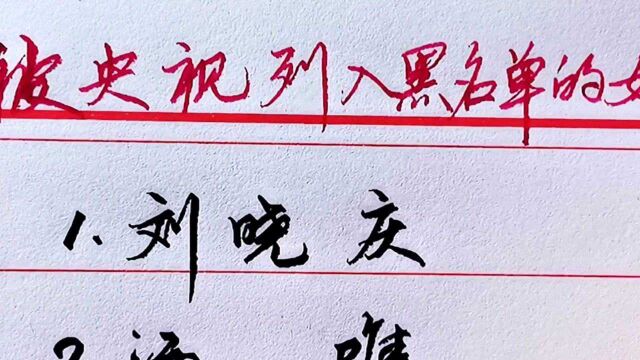 被央视列入黑名单的女
1.刘晓庆
2.汤 唯